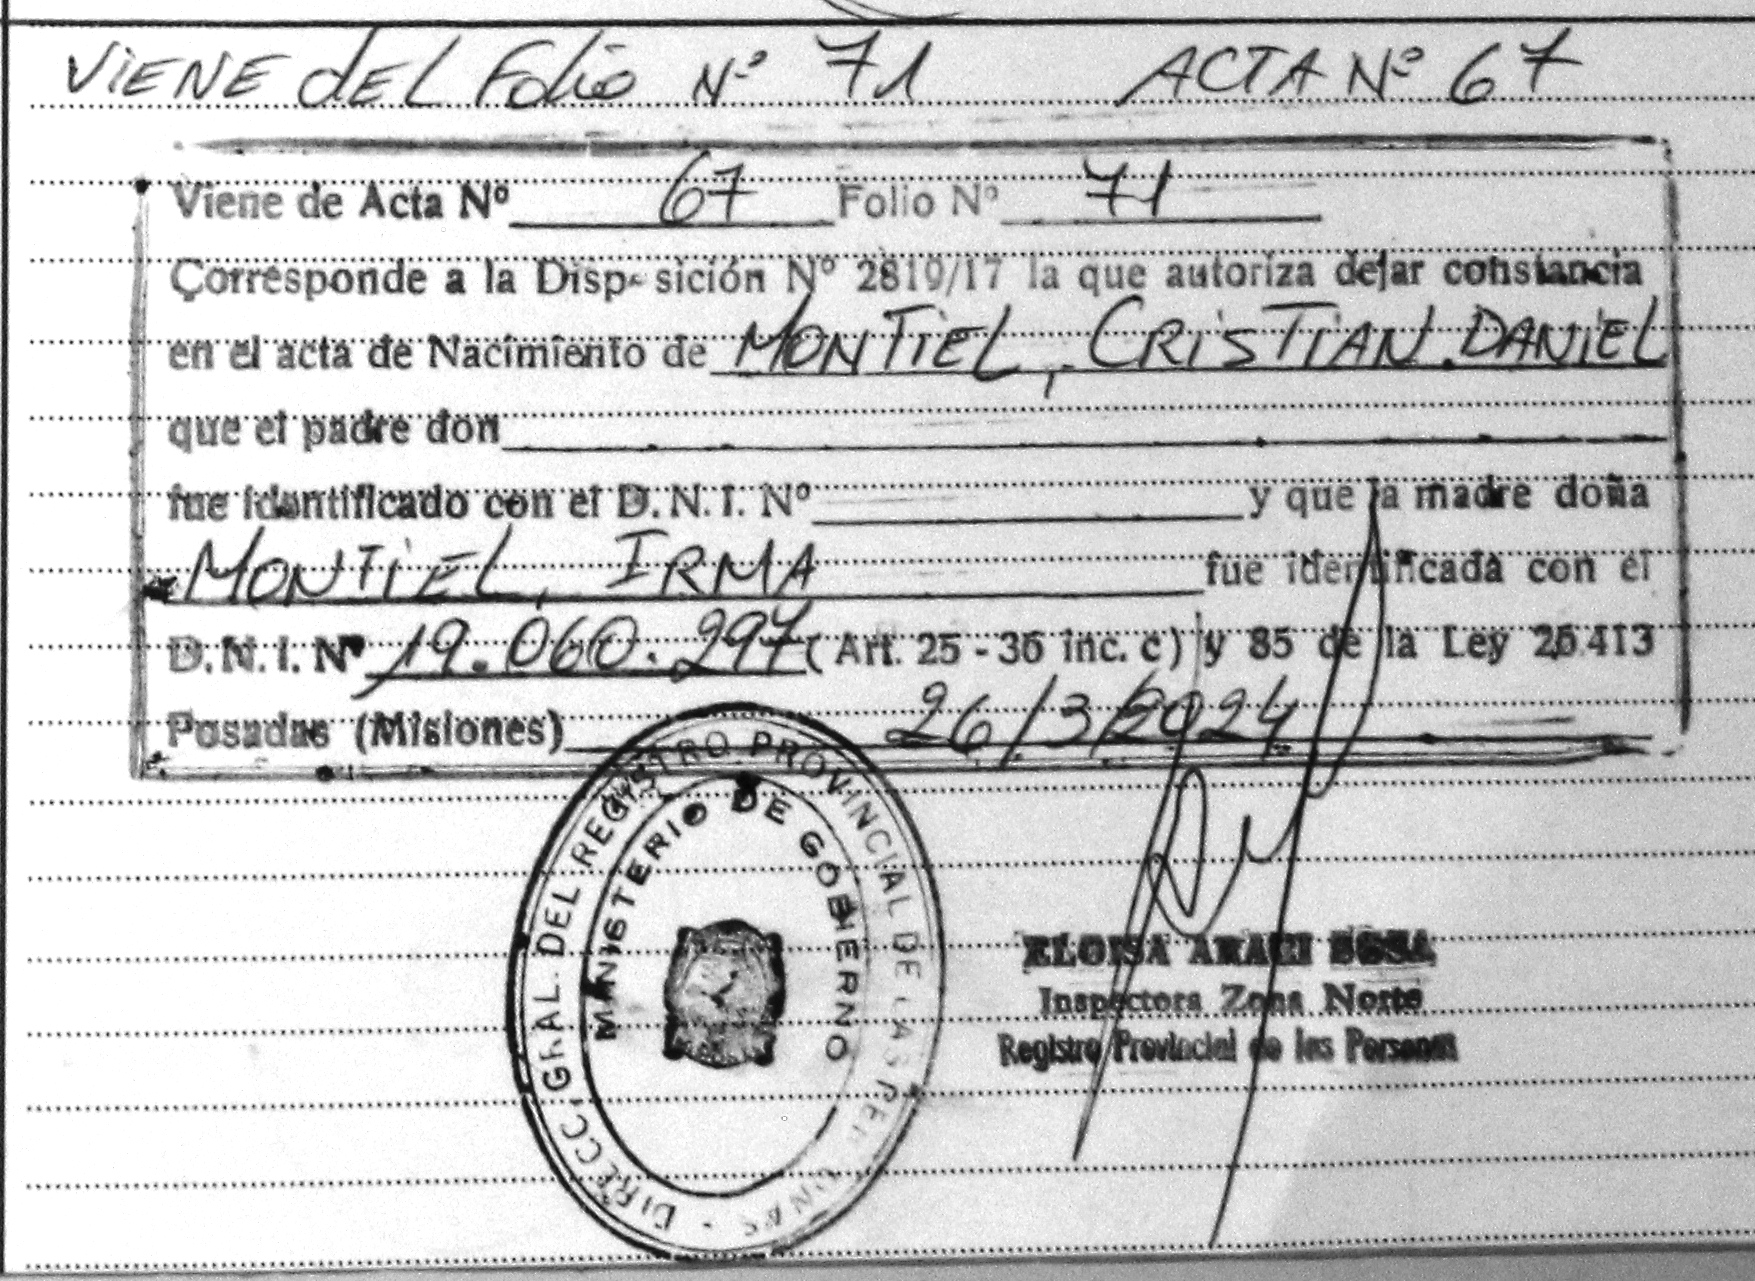 VIENE dEL Folio Nº 71 ACTA Nº 67
Viene de Acta Nº 67 Folio Nº 71
Corresponde a la Disposición Nº 2819/17 la que autoriza dejar constancia
en el acta de Nacimiento de MONTIEL, CRISTIAN DANIEL
que el padre don
fue identificado con el D.N.I. Nº y que la madre doña
MONTIEL, IRMA fue identificada con el
D.N.I. Nº 19.060.297 (Art. 25 - 36 inc. c) y 85 de la Ley 26.413
Posadas (Misiones) 26/3/2024
DIRECC. GRAL. DEL REGISTRO PROVINCIAL DE LAS PERSONAS -
MINISTERIO DE GOBIERNO
ELOISA ARACI SOSA
Inspectora Zona Norte
Registro Provincial de las Personas